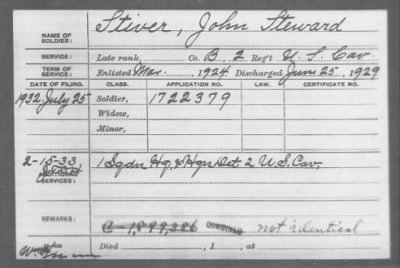 NAME OF SOLDIER: Stiver, John Steward
SERVICE: Late rank, Co. B, 2 Reg't U. S. Cav.
TERM OF SERVICE: Enlisted Mar. , 1924 Discharged Jun 25 , 1929
DATE OF FILING. CLASS. APPLICATION NO. LAW. CERTIFICATE NO.
1932 July 25 Soldier, 1722379
Widow,
Minor,
2-15-33,
ADDITIONAL SERVICES: 1 Sqdn Hq. & Hqrs Det 2 U.S. Cav.
REMARKS: C-1,899,386 COMBINED not identical
Died , 1 , at